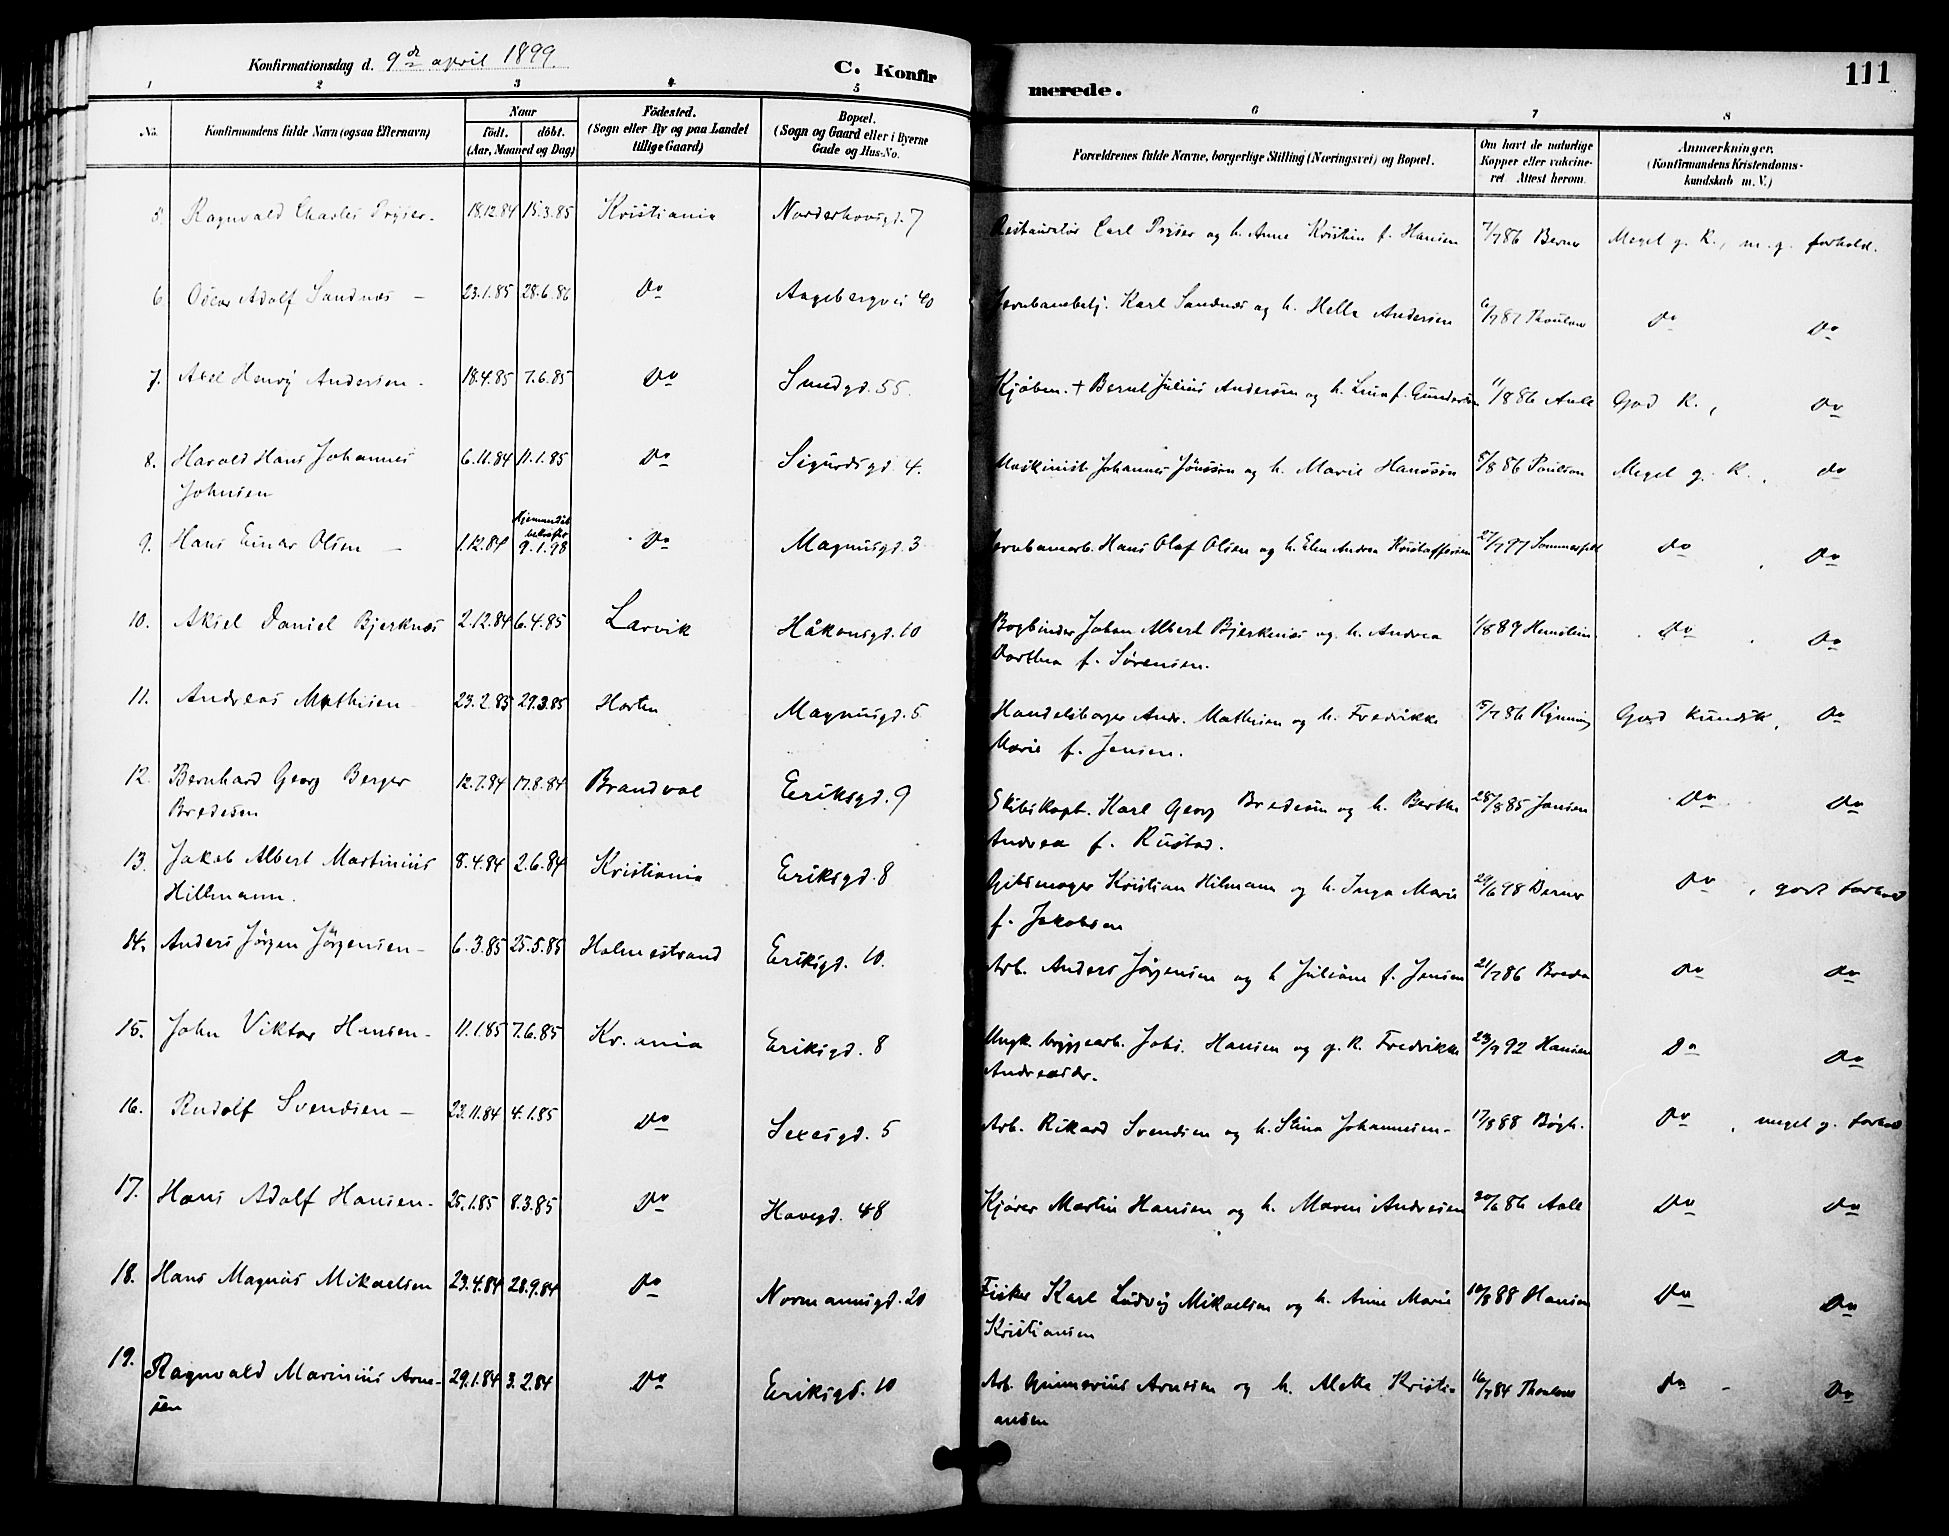 Konfirmationsdag d. 9de april 1899.
C. Konfirmerede.
111
1 2 3 4 5 6 7 8
No. Konfirmandens fulde Navn (ogsaa Efternavn)
Naar født. døbt. (Aar, Maaned og Dag)
Fødested. (Sogn eller By og paa Landet tillige Gaard)
Bopæl. (Sogn og Gaard eller i Byerne Gade og Hus-No.
Forældrenes fulde Navne, borgerlige Stilling (Næringsvei) og Bopæl.
Om havt de naturlige Kopper eller vakcineret. Attest herom.
Anmærkninger. (Konfirmandens Kristendomskundskab m. V.)
5. Ragnvald Charles Prÿser - 18.12.84 15.3.85 Kristiania Norderhovsgd. 7 Restauratør Carl Prÿser og h. Anne Kristin f. Hansen 7/7 86 Berner Meget g. K., m. g. forhold.
6. Oscar Adolf Sandnæs - 23.1.85 28.6.86 Do Aagebergvei 40 Jernbanebetj. Karl Sandnæs og h. Helle Andersen 6/7 87 Thoulow Do Do
7. Axel Henrÿ Andersen - 18.4.85 7.6.85 Do Smedgd. 55. Kjøbm. + Bernt Julius Andersen og h. Lina f. Gundersen 11/8 86 Aall God K., Do
8. Harald Hans Johannes 6.11.84 11.1.85 Do Sigurdsgd. 4. Maskinist Johannes Jonsson og h. Marie Hansson 5/8 86 Paulson Meget g. K., do
Johnsen
9. Hans Einar Olsen - 1.12.84 Hjemmedåb bekræftet 9.1.98 Do Magnusgd. 3 Jernbanearb. Hans Olaf Olsen og h. Elen Andrea Kristoffersen 27/7 97 Sommerfelt Do, Do
10. Aksel Daniel Bjerknæs 2.12.84 6.4.85 Larvik Håkonsgd. 10 Bogbinder Johan Albert Bjerknæs og h. Andrea 1/8 89 Do Do
Dorthea f. Sørensen.
11. Andreas Mathisen 23.2.85 29.3.85 Horten Magnusgd. 5 Handelsborger Andr. Mathisen og h. Fredrikke 5/7 86 Rÿnning God Kundsk, Do
Marie f. Jensen.
12. Bernhard Georg Berger 12.7.84 17.8.84 Brandval Eriksgd. 9 Skibskapt. Karl Georg Bredesen og h. Berthe 28/8 85 Jansen Do Do
Bredesen Andrea f. Rustad.
13. Jakob Albert Martinius 8.4.84 2.6.84 Kristiania Eriksgd. 8 Gibsmager Kristian Hilmann og h. Inga Marie 29/6 98 Berner Do, godt forhold
Hillmann. f. Jakobsen
14. Anders Jørgen Jørgensen - 6.3.85 25.5.85 Holmestrand Eriksgd. 10. Arb. Anders Jørgensen og h Juliane f. Jensen 21/7 86 Breda Do Do
15. John Viktor Hansen - 11.1.85 7.6.85 Kr.ania Eriksgd. 8 Ungk. bryggearb. Johs. Hansen og p. k. Fredrikke 23/9 92 Hansen Do Do
Andreasdr.
16. Rudolf Svendsen - 23.11.84 4.1.85 Do Sexesgd. 5 Arb. Rikard Svendsen og h. Stina Johannesen - 17/8 88 Bøgh. Do, meget g. forhold
17. Hans Adolf Hansen - 25.1.85 8.3.85 Do Havegd. 48 Kjører Martin Hansen og h. Maren Andresen 20/6 86 Aall Do Do
18. Hans Magnus Mikaelsen 23.4.84 28.9.84 Do Normannsgd. 20 Fisker Karl Ludvig Mikaelsen og h. Anne Marie 10/8 88 Hansen Do Do
Kristiansen
19. Ragnvald Marinius Arne- 29.1.84 3.2.84 Do Eriksgd. 10 Arb. Gunnerius Arnesen og h. Mette Kristi- 16/7 84 Thoulow do - Do
sen ansen